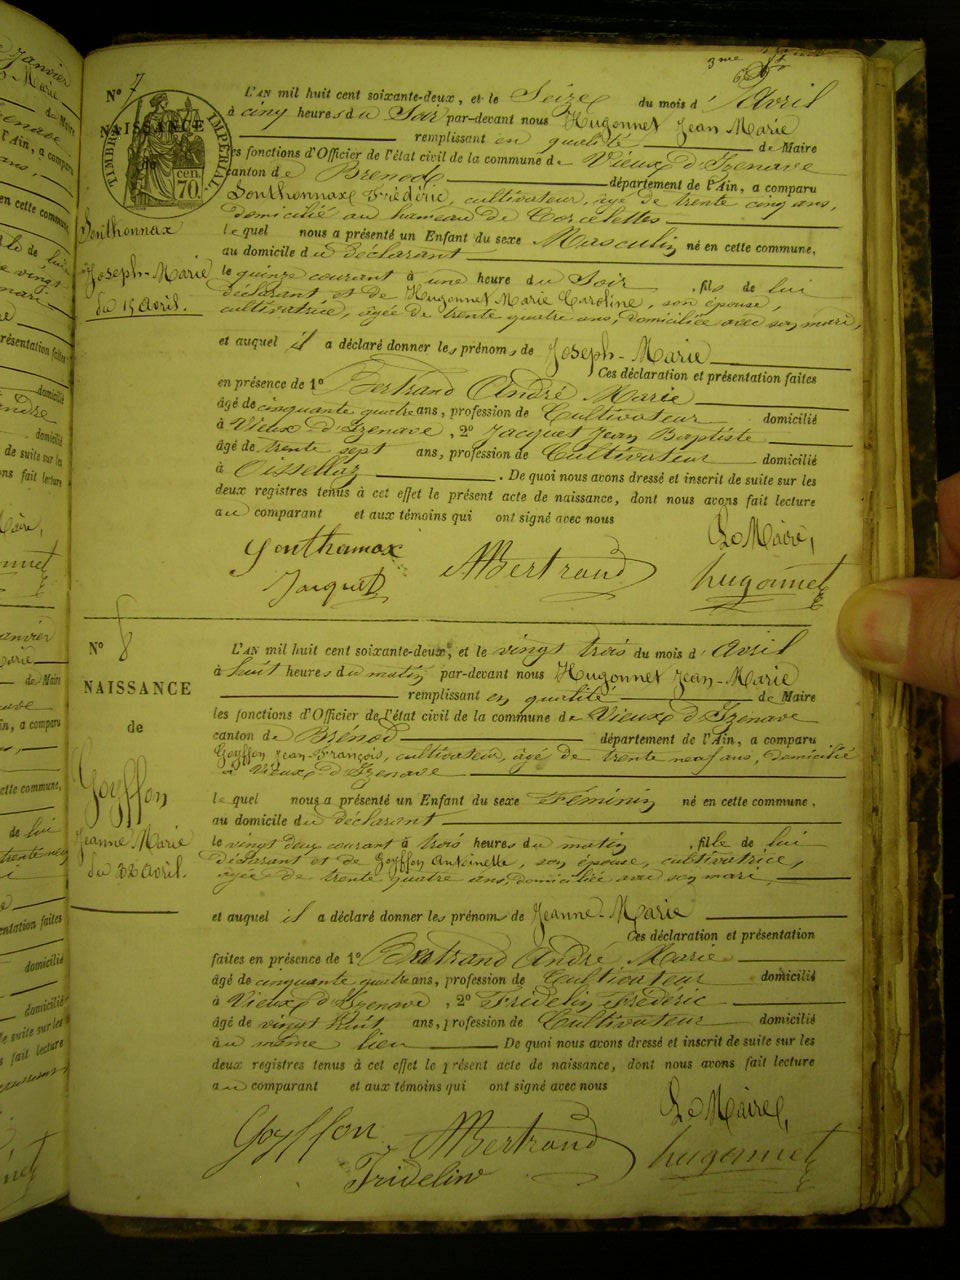 3me
N° 7
TIMBRE IMPÉRIAL
NAISSANCE
de
cen. 70.
Gonthonnax
Joseph-Marie
du 15 avril.
L'AN mil huit cent soixante-deux, et le Seize du mois d'Avril
à cinq heures du Soir par-devant nous Hugonnet Jean Marie
remplissant en qualité de Maire
les fonctions d'Officier de l'état civil de la commune de Vieux d'Izenave
canton de Brenod département de l'Ain, a comparu
Gonthonnax Frédéric, cultivateur, âgé de trente cinq ans,
domicilié au hameau de Corcelettes
lequel nous a présenté un Enfant du sexe Masculin né en cette commune,
au domicile du déclarant
le quinze courant à une heure du Soir, fils de lui
déclarant, et de Hugonnet Marie Caroline, son épouse,
cultivatrice, âgée de trente quatre ans, domiciliée avec son mari,
et auquel il a déclaré donner les prénoms de Joseph-Marie
Ces déclaration et présentation faites
en présence de 1° Bertrand André Marie
âgé de cinquante quatre ans, profession de Cultivateur domicilié
à Vieux d'Izenave, 2° Jacquet Jean Baptiste
âgé de trente sept ans, profession de Cultivateur domicilié
à Oisselaz. De quoi nous avons dressé et inscrit de suite sur les
deux registres tenus à cet effet le présent acte de naissance, dont nous avons fait lecture
au comparant et aux témoins qui ont signé avec nous
Le Maire,
Gonthonnax
Jacquet
Bertrand
hugonnet
N° 8
NAISSANCE
de
Goyffon
Jeanne Marie
du 22 avril.
L'AN mil huit cent soixante-deux, et le vingt trois du mois d'avril
à huit heures du matin par-devant nous Hugonnet Jean-Marie
remplissant en qualité de Maire
les fonctions d'Officier de l'état civil de la commune de Vieux d'Izenave
canton de Brenod département de l'Ain, a comparu
Goyffon Jean-François, cultivateur, âgé de trente neuf ans, domicilié
à Vieux d'Izenave
lequel nous a présenté un Enfant du sexe Féminin né en cette commune,
au domicile du déclarant
le vingt deux courant à trois heures du matin, fille de lui
Déclarant et de Goyffon Antoinette, son épouse, cultivatrice,
âgée de trente quatre ans, domiciliée avec son mari,
et auquel il a déclaré donner les prénoms de Jeanne-Marie
Ces déclaration et présentation
faites en présence de 1° Bertrand André Marie
âgé de cinquante quatre ans, profession de Cultivateur domicilié
à Vieux d'Izenave, 2° Fridelin Frédéric
âgé de vingt huit ans, profession de Cultivateur domicilié
au même lieu De quoi nous avons dressé et inscrit de suite sur les
deux registres tenus à cet effet le présent acte de naissance, dont nous avons fait lecture
au comparant et aux témoins qui ont signé avec nous
Le Maire,
Goyffon
Bertrand
hugonnet
Fridelin